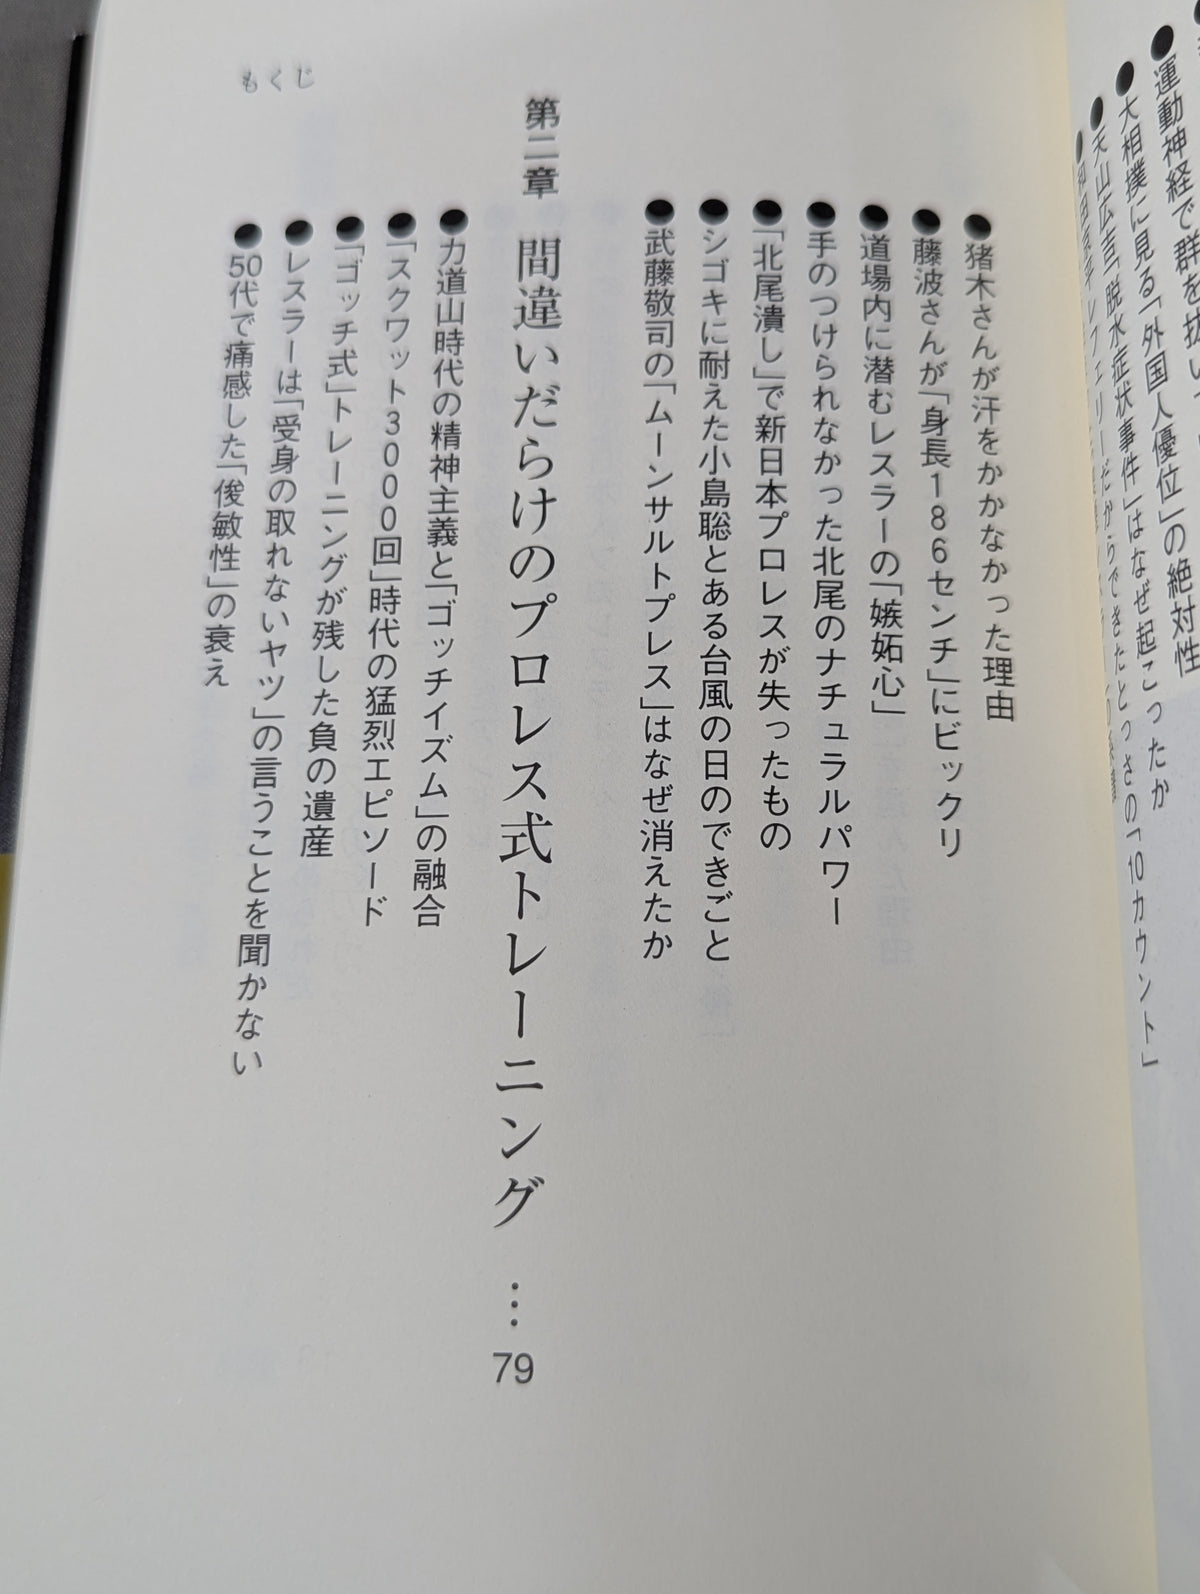 ●運動神経で群を抜い
●大相撲に見る「外国人優位」の絶対性
●天山広吉「脱水症状事件」はなぜ起こったか
レフェリーだからできたとっさの「10カウント」
●猪木さんが汗をかかなかった理由
●藤波さんが「身長186センチ」にビックリ
●道場内に潜むレスラーの「嫉妬心」
●手のつけられなかった北尾のナチュラルパワー
●「北尾潰し」で新日本プロレスが失ったもの
●シゴキに耐えた小島聡とある台風の日のできごと
●武藤敬司の「ムーンサルトプレス」はなぜ消えたか
第二章 間違いだらけのプロレス式トレーニング … 79
●力道山時代の精神主義と「ゴッチイズム」の融合
●「スクワット3000回」時代の猛烈エピソード
●「ゴッチ式」トレーニングが残した負の遺産
●レスラーは「受身の取れないヤツ」の言うことを聞かない
●50代で痛感した「俊敏性」の衰え
もくじ